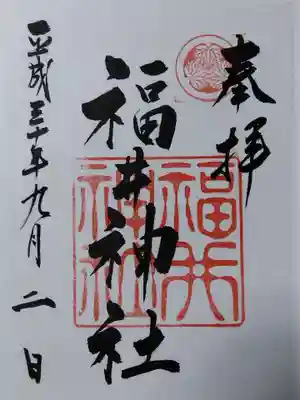 奉拝
福井神社
福井
神社
平成三十年九月二日